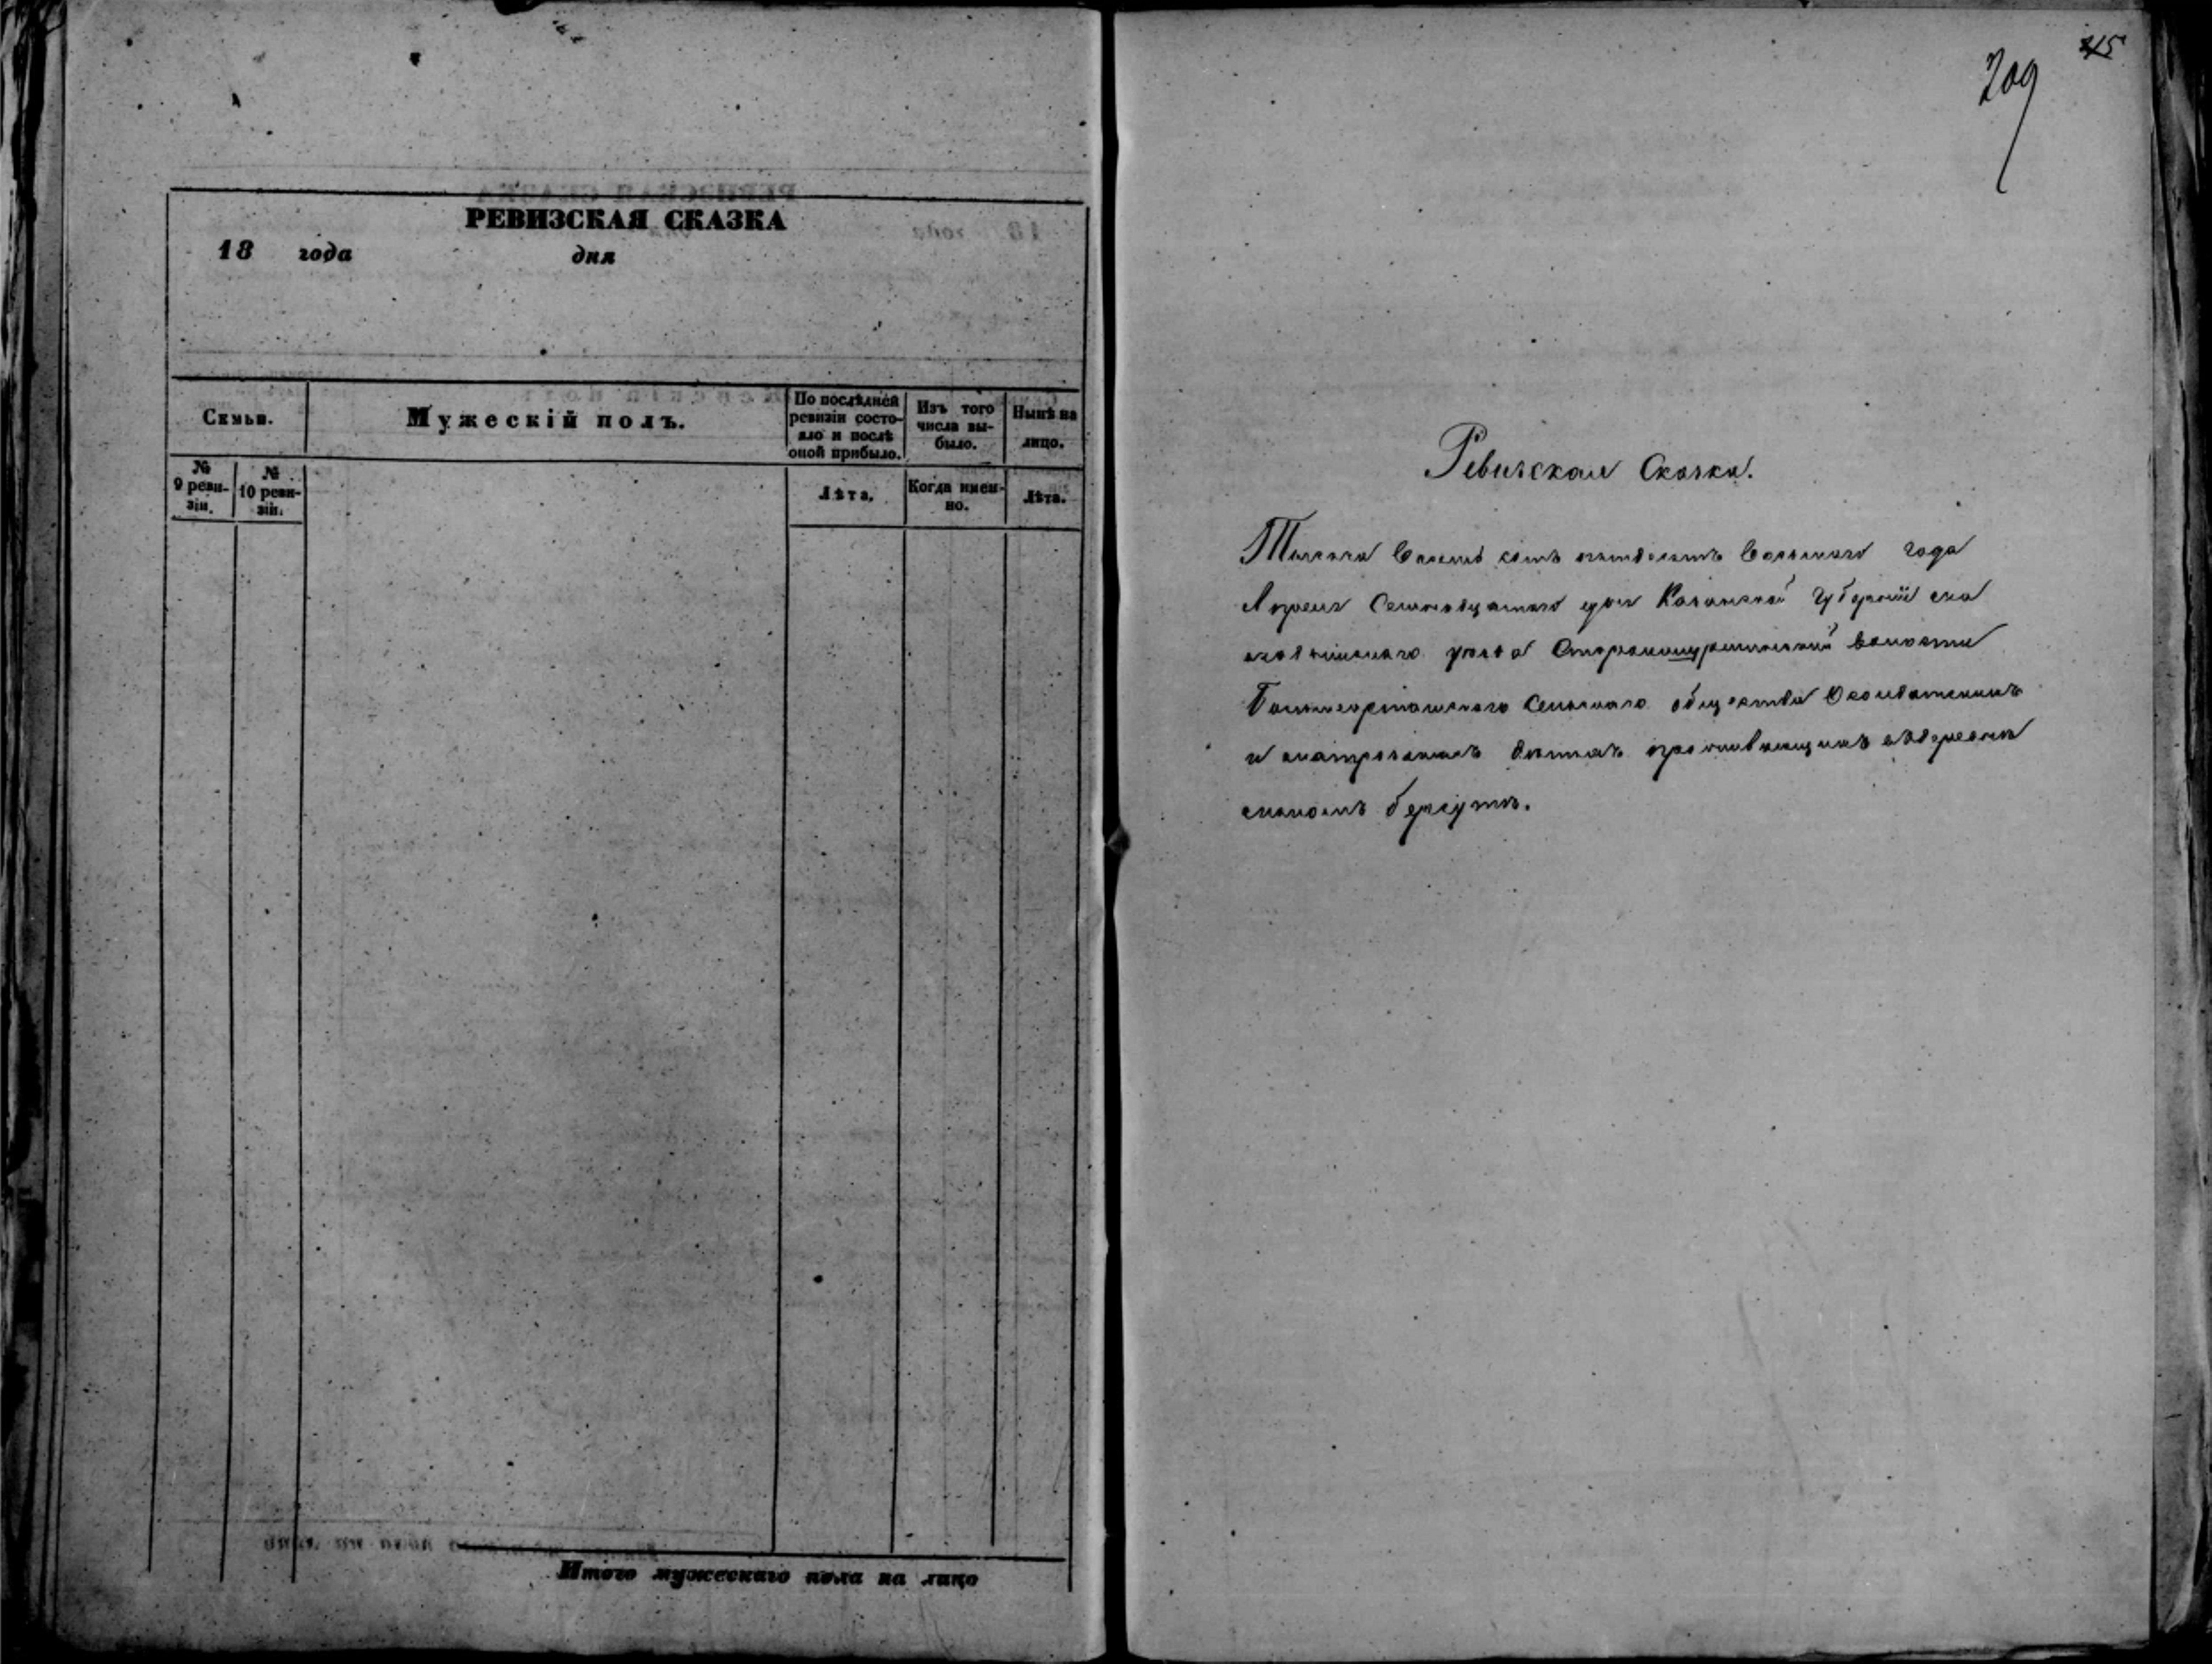 РЕВИЗСКАЯ СКАЗКА
18 года дня
Семьи.
Мужескій полъ.
По послѣдней ревизіи состо-
яло и послѣ оной прибыло.
Изъ того числа вы-
было.
Нынѣ на лицо.
№ 9 реви-
зіи.
№ 10 реви-
зіи.
Лѣта.
Когда имен-
но.
Лѣта.
Итого мужескаго пола на лицо
45
209
Ревизская Сказка.
Тысяча восемь сотъ пятдесятъ восьмаго года
Апреля Семнадцатаго дня Казанской Губерніи ма
мадышскаго уезда волости
Сельскаго общества
и детей проживающихъ въ деревни
маломъ берсутѣ.